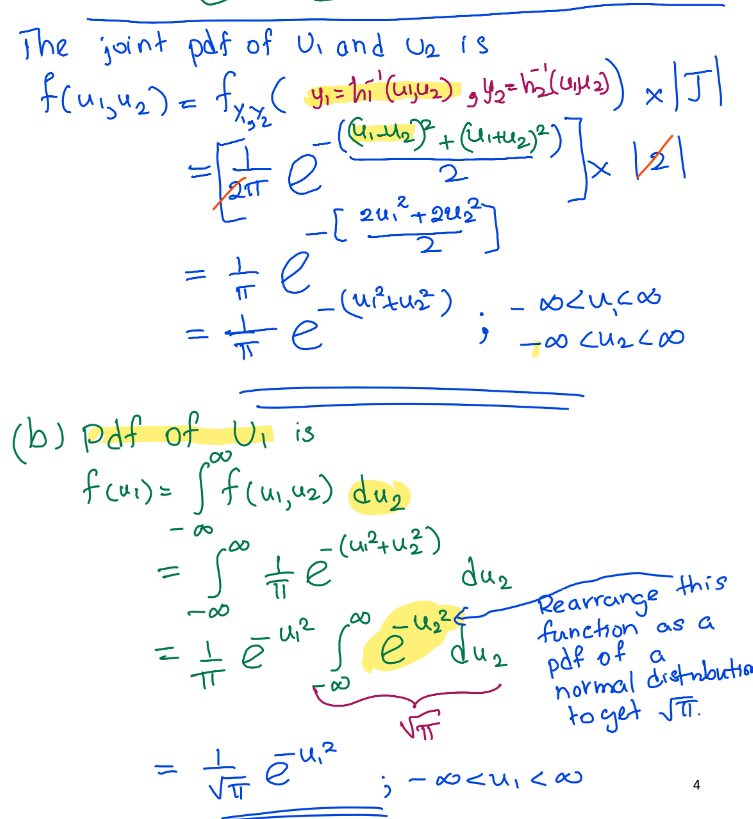 The joint pdf of U₁ and U₂ is
f(u₁,u₂) = f_{Y₁,Y₂}( y₁=h₁⁻¹(u₁,u₂) , y₂=h₂⁻¹(u₁,u₂) ) × |J|
= [ 1/2π e^{-((u₁-u₂)² + (u₁+u₂)²)/2} ] × |2|
= 1/π e^{-[(2u₁² + 2u₂²)/2]}
= 1/π e^{-(u₁²+u₂²)} ; -∞<u₁<∞
-∞<u₂<∞
(b) pdf of U₁ is
f(u₁) = ∫_{-∞}^{∞} f(u₁,u₂) du₂
= ∫_{-∞}^{∞} 1/π e^{-(u₁²+u₂²)} du₂
= 1/π e^{-u₁²} ∫_{-∞}^{∞} e^{-u₂²} du₂
√π
Rearrange this
function as a
pdf of a
normal distribution
to get √π.
= 1/√π e^{-u₁²} ; -∞<u₁<∞
4